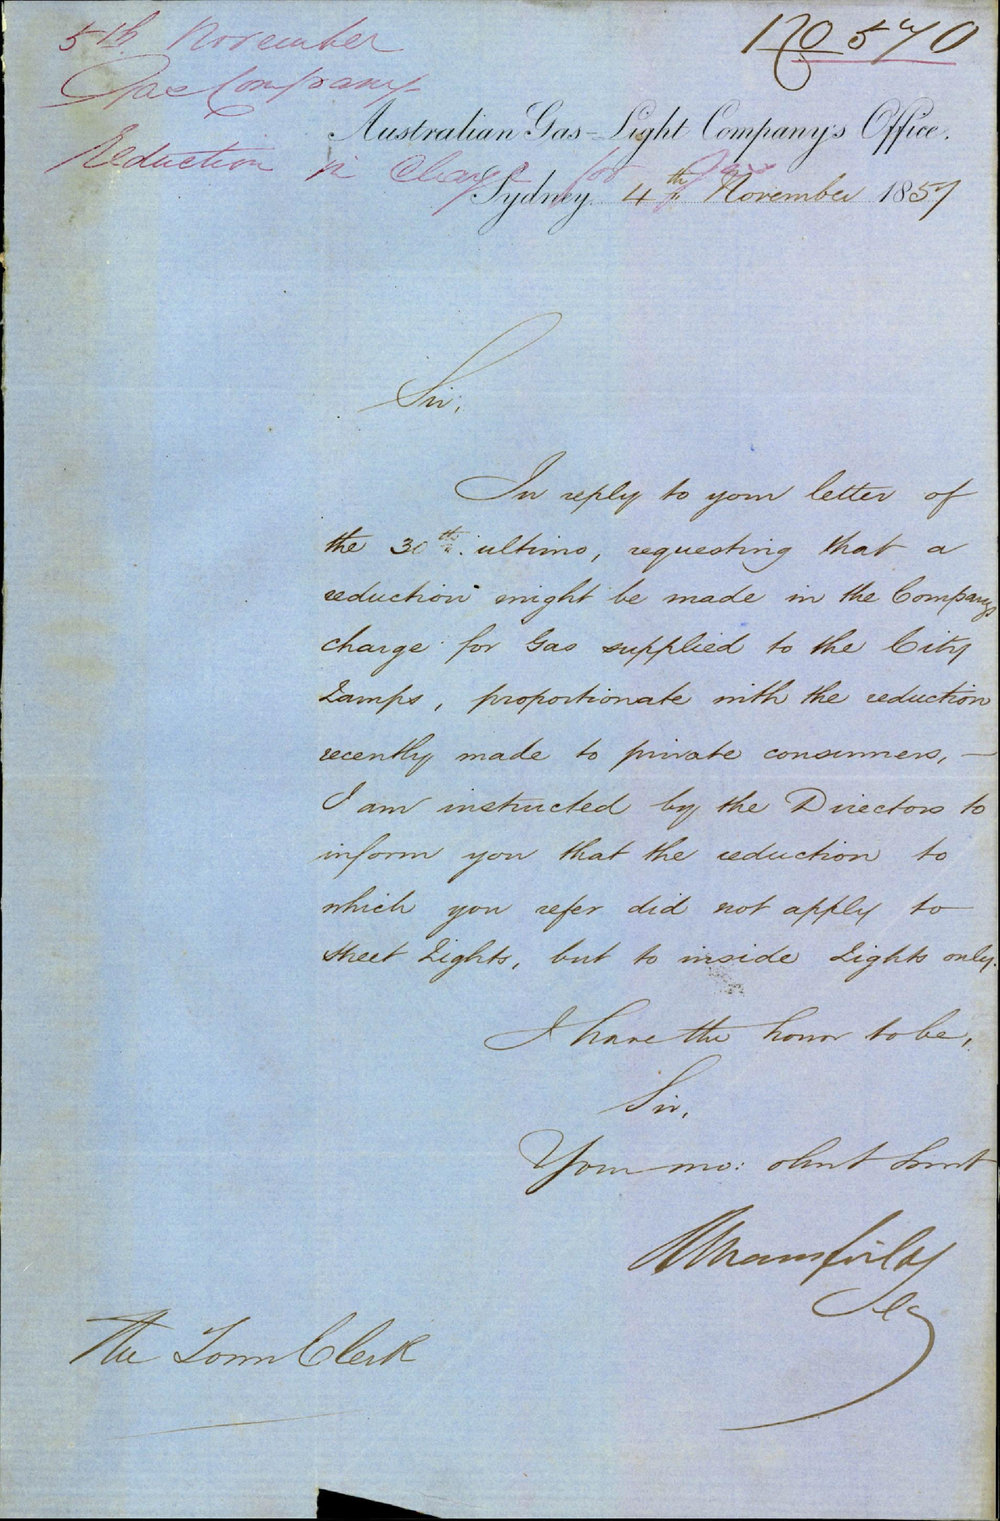 5th November
Gas Company
Reduction in Charge for Gas
No 570
Australian Gas-Light Company's Office.
Sydney 4th November 1857
Sir,
In reply to your letter of
the 30th ultimo, requesting that a
reduction might be made in the Companys
charge for Gas supplied to the City
Lamps, proportionate with the reduction
recently made to private consumers, —
I am instructed by the Directors to
inform you that the reduction to
which you refer did not apply to
Street Lights, but to inside Lights only.
I have the honor to be,
Sir,
Your mo: obnt Servt
Mansfield
Sec
The Town Clerk